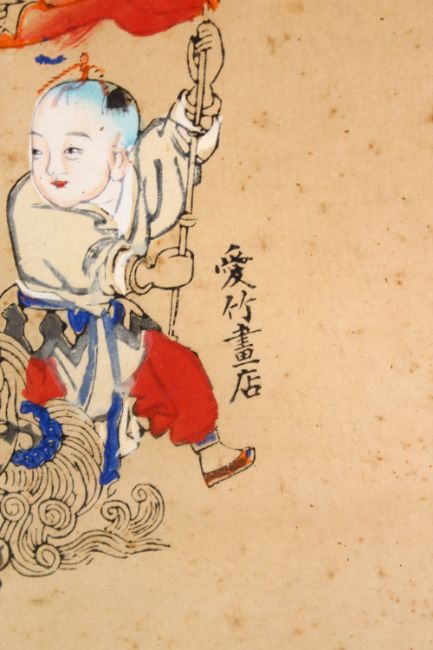 愛竹畫店